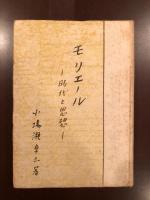 モリエール
―時代と思想―
小場瀬卓三著